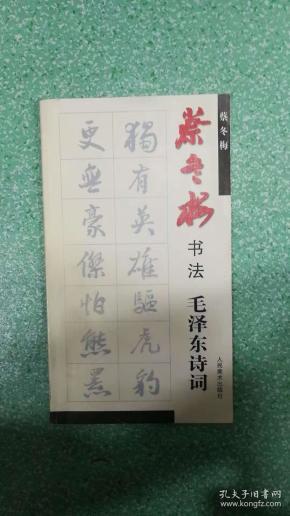 蔡冬梅
蔡冬梅
书法
毛泽东诗词
人民美术出版社
獨有英雄驅虎豹
更無豪傑怕熊羆
孔夫子旧书网